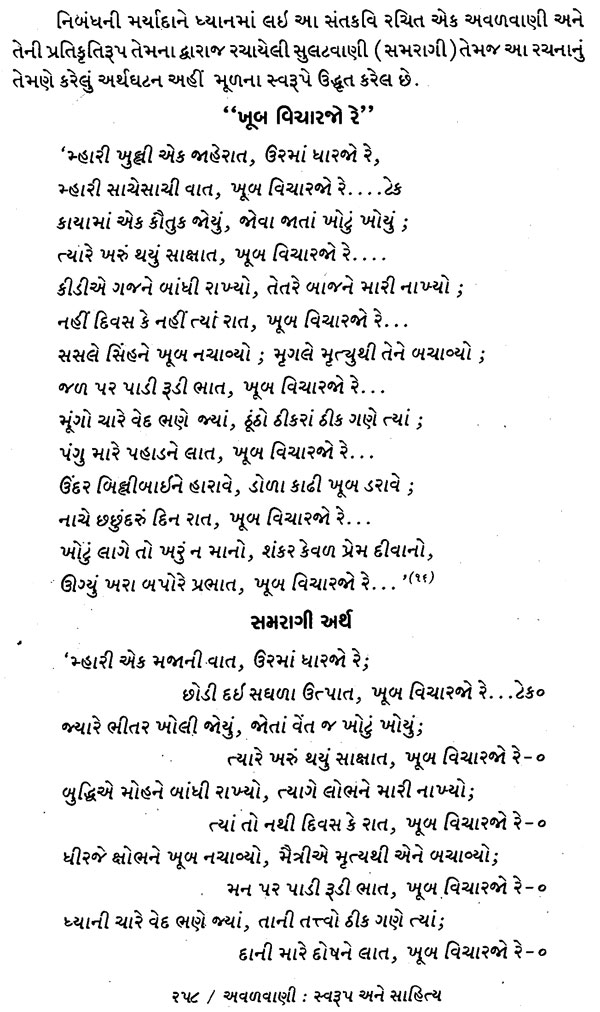 નિબંધની મર્યાદાને ધ્યાનમાં લઇ આ સંતકવિ રચિત એક અવળવાણી અને
તેની પ્રતિકૃતિરૂપ તેમના દ્વારાજ રચાયેલી સુલટવાણી (સમરાગી) તેમજ આ રચનાનું
તેમણે કરેલું અર્થઘટન અહીં મૂળના સ્વરૂપે ઉદ્ધૃત કરેલ છે.
“ખૂબ વિચારજો રે”
‘મ્હારી ખુલ્લી એક જાહેરાત, ઉરમાં ધારજો રે,
મ્હારી સાચેસાચી વાત, ખૂબ વિચારજો રે....ટેક
કાયામાં એક કૌતુક જોયું, જોવા જાતાં ખોટું ખોયું ;
ત્યારે ખરું થયું સાક્ષાત, ખૂબ વિચારજો રે....
કીડીએ ગજને બાંધી રાખ્યો, તેતરે બાજને મારી નાખ્યો ;
નહીં દિવસ કે નહીં ત્યાં રાત, ખૂબ વિચારજો રે...
સસલે સિંહને ખૂબ નચાવ્યો ; મૃગલે મૃત્યુથી તેને બચાવ્યો ;
જળ પર પાડી રૂડી ભાત, ખૂબ વિચારજો રે...
મૂંગો ચારે વેદ ભણે જ્યાં, ઠૂંઠો ઠીકરાં ઠીક ગણે ત્યાં ;
પંગુ મારે પહાડને લાત, ખૂબ વિચારજો રે...
ઉંદર બિલ્લીબાઈને હારાવે, ડોળા કાઢી ખૂબ ડરાવે ;
નાચે છછુંદરું દિન રાત, ખૂબ વિચારજો રે...
ખોટું લાગે તો ખરું ન માનો, શંકર કેવળ પ્રેમ દીવાનો,
ઊગ્યું ખરા બપોરે પ્રભાત, ખૂબ વિચારજો રે...’(૧૬)
સમરાગી અર્થ
‘મ્હારી એક મજાની વાત, ઉરમાં ધારજો રે;
છોડી દઇ સઘળા ઉત્પાત, ખૂબ વિચારજો રે...ટેક૦
જ્યારે ભીતર ખોલી જોયું, જોતાં વેંત જ ખોટું ખોયું;
ત્યારે ખરું થયું સાક્ષાત, ખૂબ વિચારજો રે-૦
બુદ્ધિએ મોહને બાંધી રાખ્યો, ત્યાગે લોભને મારી નાખ્યો;
ત્યાં તો નથી દિવસ કે રાત, ખૂબ વિચારજો રે-૦
ધીરજે ક્ષોભને ખૂબ નચાવ્યો, મૈત્રીએ મૃત્યથી એને બચાવ્યો;
મન પર પાડી રૂડી ભાત, ખૂબ વિચારજો રે-૦
ધ્યાની ચારે વેદ ભણે જ્યાં, તાની તત્ત્વો ઠીક ગણે ત્યાં;
દાની મારે દોષને લાત, ખૂબ વિચારજો રે-૦
૨૫૮ / અવળવાણી : સ્વરૂપ અને સાહિત્ય